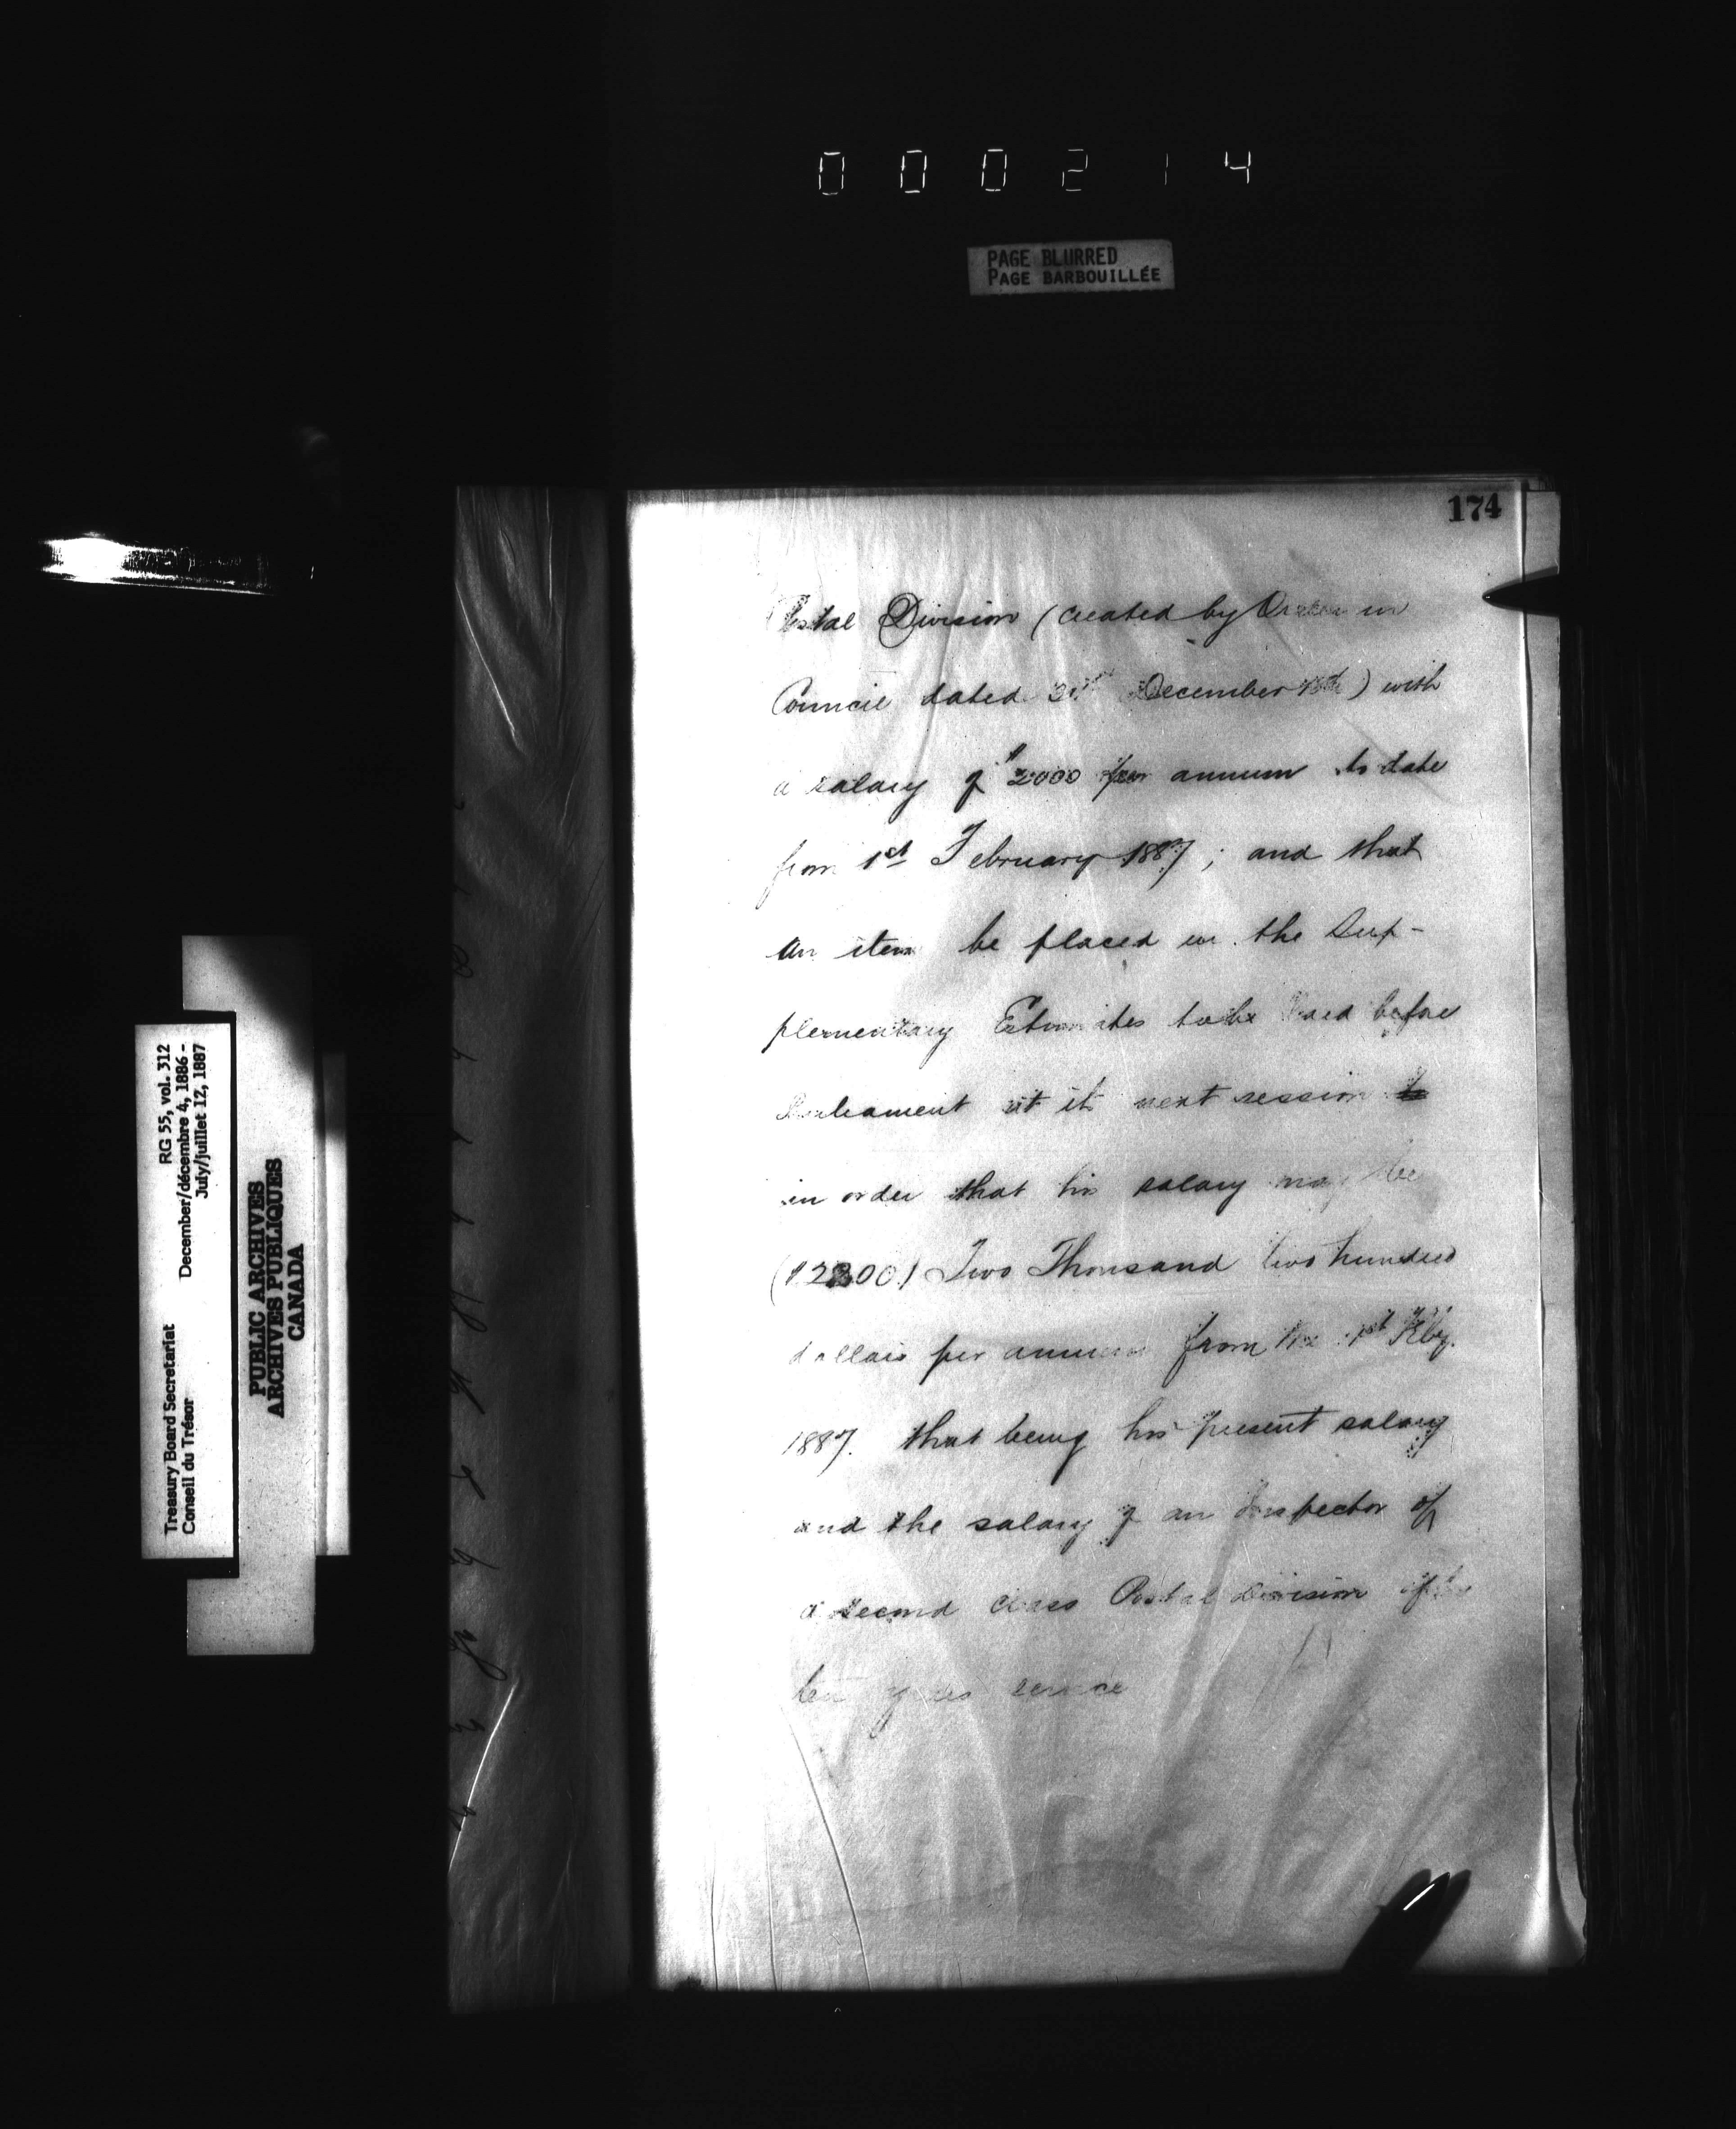 000214
PAGE BLURRED
PAGE BARBOUILLÉE
174
Postal Division (created by Order in
Council dated December ) with
a salary of $2000 per annum to date
from 1st February 1887; and that
an item be placed in the Sup-
plementary Estimates to be laid before
Parliament at its next session to
in order that his salary may be
($2200) Two Thousand two hundred
dollars per annum from the 1st Feby.
1887. that being his present salary
and the salary of an Inspector of
a second class Postal Division after
ten years service
Treasury Board Secretariat RG 55, vol. 312
Conseil du Trésor December/décembre 4, 1886 -
July/juillet 12, 1887
PUBLIC ARCHIVES
ARCHIVES PUBLIQUES
CANADA